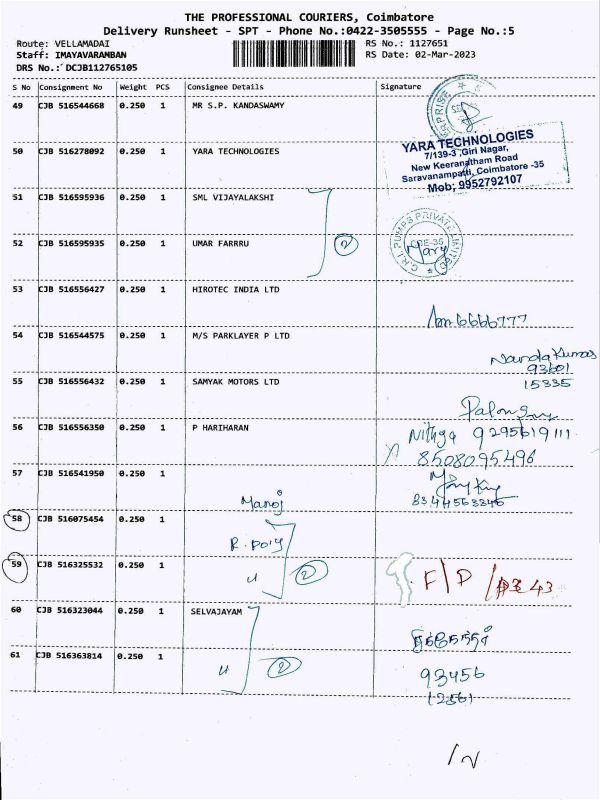 THE PROFESSIONAL COURIERS, Coimbatore
Delivery Runsheet - SPT - Phone No.:0422-3505555 - Page No.:5
Route: VELLAMADAI RS No.: 1127651
Staff: IMAYAVARAMBAN RS Date: 02-Mar-2023
DRS No.: DCJB112765105
S No Consignment No Weight PCS Consignee Details Signature
49 CJB 516544668 0.250 1 MR S.P. KANDASWAMY
YARA TECHNOLOGIES
7/139-3, Giri Nagar,
New Keeranatham Road
Saravanampatti, Coimbatore -35
Mob; 9952792107
50 CJB 516278092 0.250 1 YARA TECHNOLOGIES
51 CJB 516595936 0.250 1 SML VIJAYALAKSHI
C.R.I. PUMPS PRIVATE LIMITED
CBE-35
Mary
52 CJB 516595935 0.250 1 UMAR FARRRU 2
53 CJB 516556427 0.250 1 HIROTEC INDIA LTD
6666777
54 CJB 516544575 0.250 1 M/S PARKLAYER P LTD
Nanda Kumar
93601
15335
55 CJB 516556432 0.250 1 SAMYAK MOTORS LTD
56 CJB 516556350 0.250 1 P HARIHARAN
Nithya 9295619111
8508095496
57 CJB 516541950 0.250 1
8344563346
Manoj
58 CJB 516075454 0.250 1
59 CJB 516325532 0.250 1
u 2 F/P
60 CJB 516323044 0.250 1 SELVAJAYAM
61 CJB 516363814 0.250 1
u 2 93456
12561